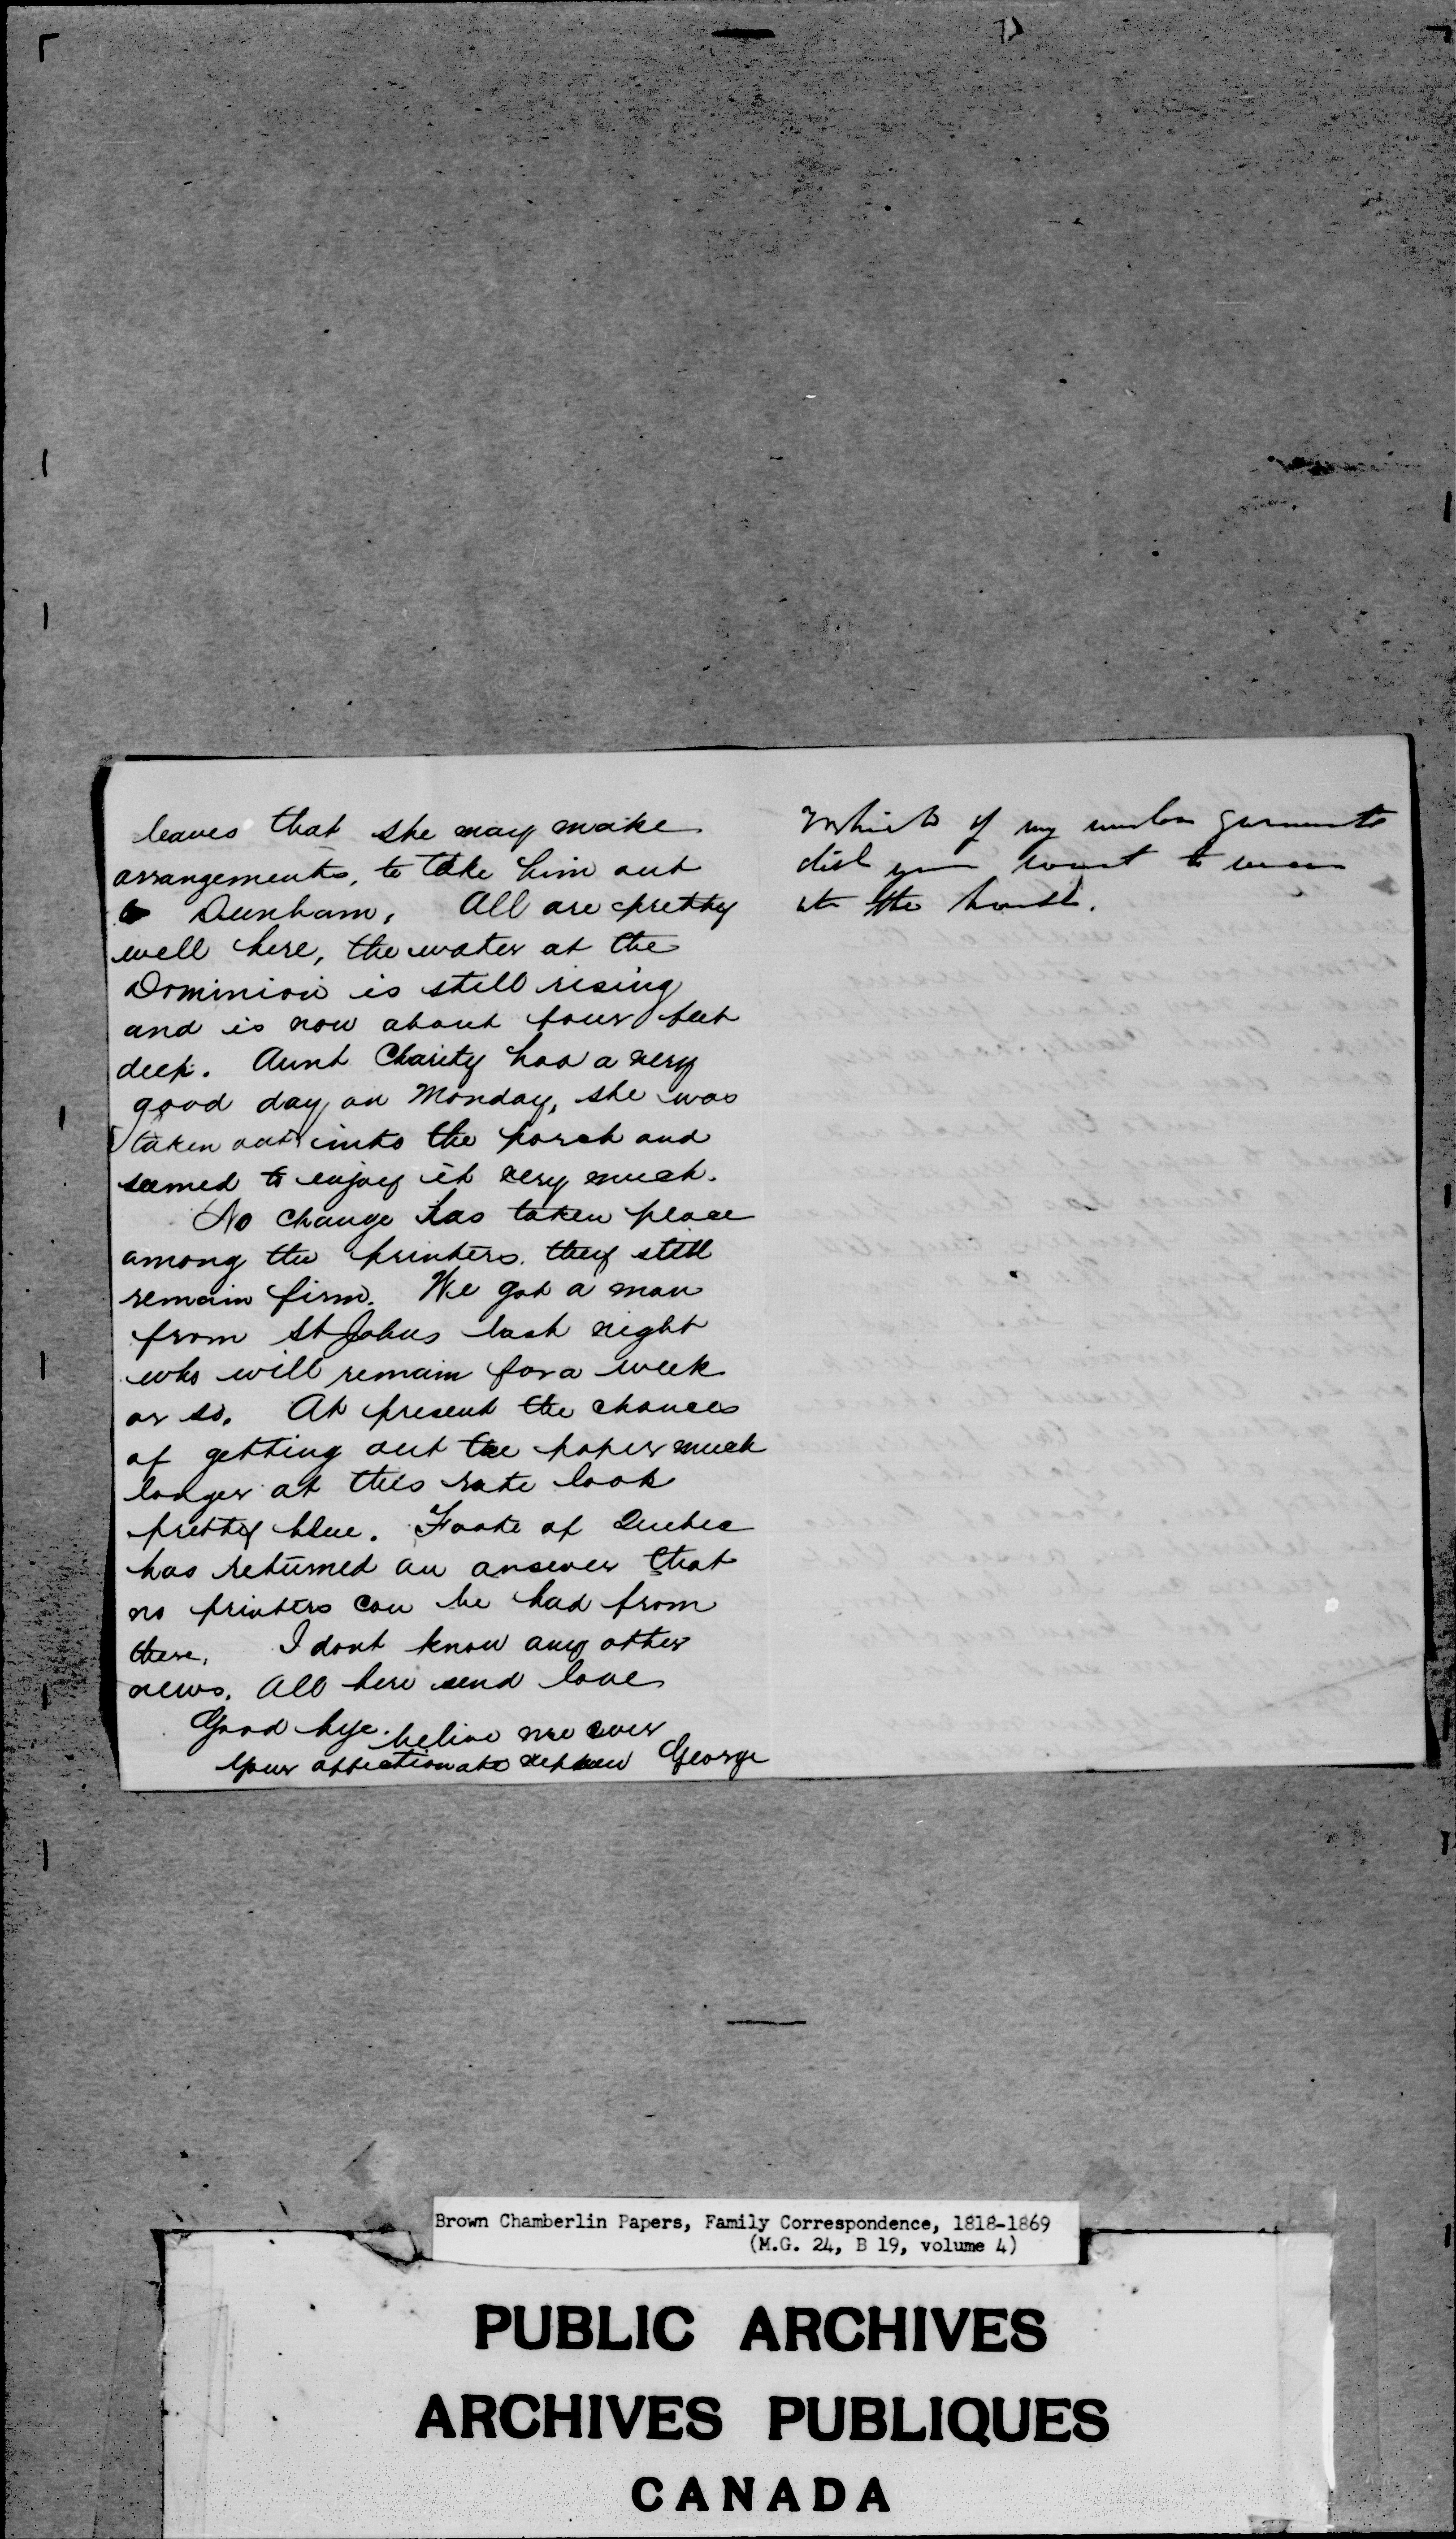 leaves that she may make
arrangements, to take him out
to Dunham, All are pretty
well here, the water at the
Dominion is still rising
and is now about four feet
deep. Aunt Charity had a very
good day on Monday, she was
taken out into the porch and
seemed to enjoy it very much.
No change has taken place
among the printers. they still
remain firm. We got a man
from St Johns last night
who will remain for a week
or so. At present the chances
of getting out the paper much
longer at this rate look
pretty blue. Foote of Quebec
has returned an answer that
no printers can be had from
there. I dont know any other
news. All here send love
Good bye. believe me ever
Your affectionate nephew George
Which of my garments
did you want to
at the house.
Brown Chamberlin Papers, Family Correspondence, 1818-1869
(M.G. 24, B 19, volume 4)
PUBLIC ARCHIVES
ARCHIVES PUBLIQUES
CANADA